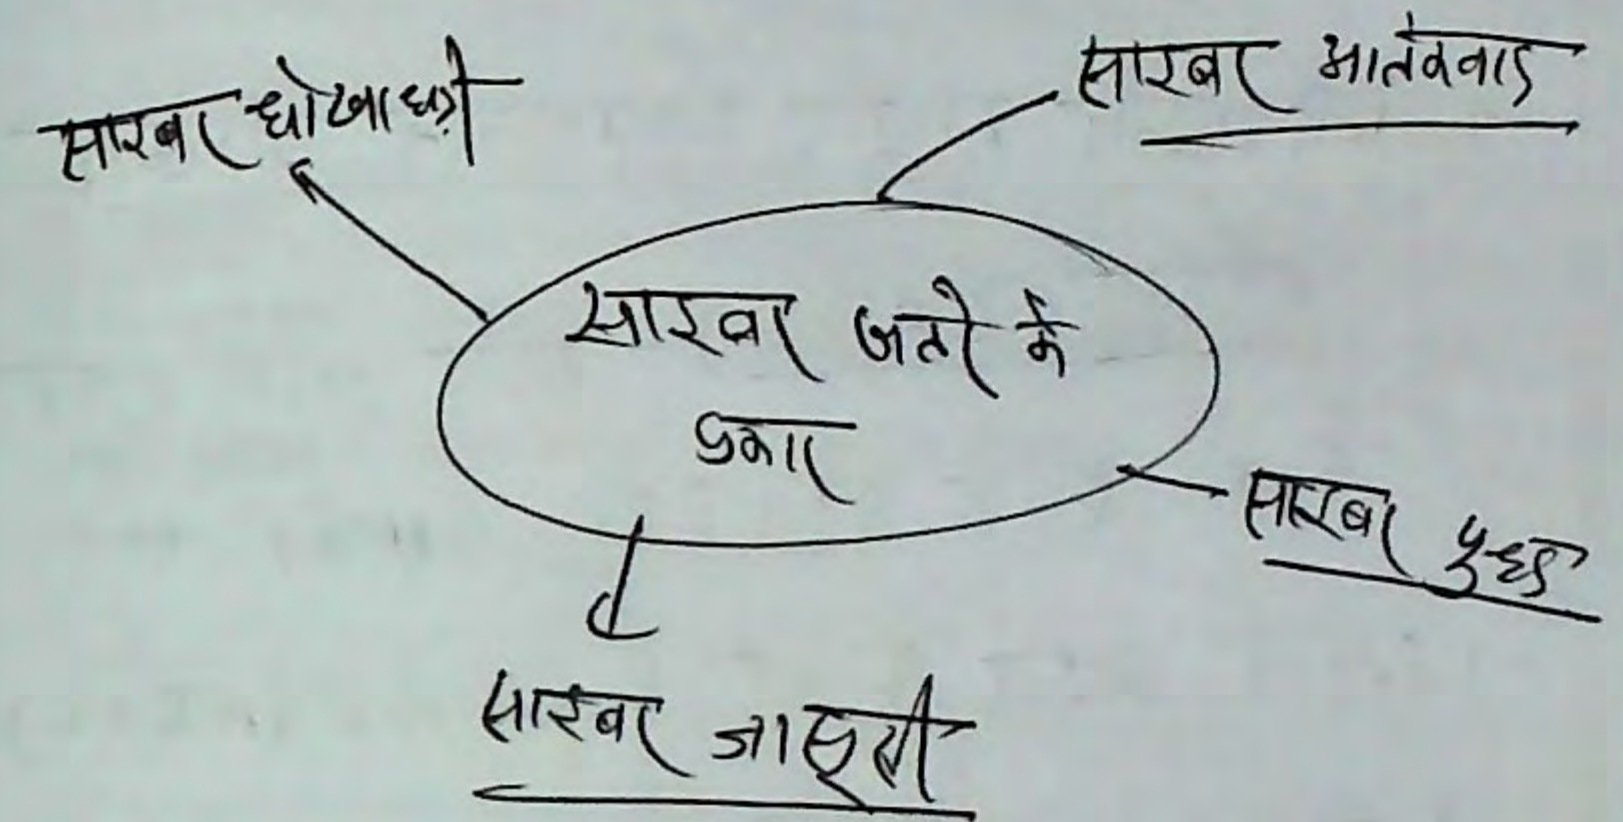 साइबर धोखाधड़ी
साइबर आतंकवाद
साइबर खतरे के
प्रकार
साइबर युद्ध
साइबर जासूसी